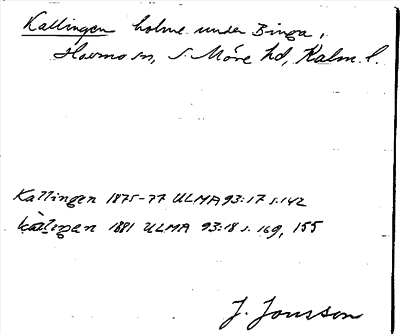 Kallingen holme under Binga,
sn, S. Möre hd, Kalm. l.
Kallingen 1875-77 ULMA 93:17 s. 142
1881 ULMA 93:18 s. 169, 155
J. Jonsson